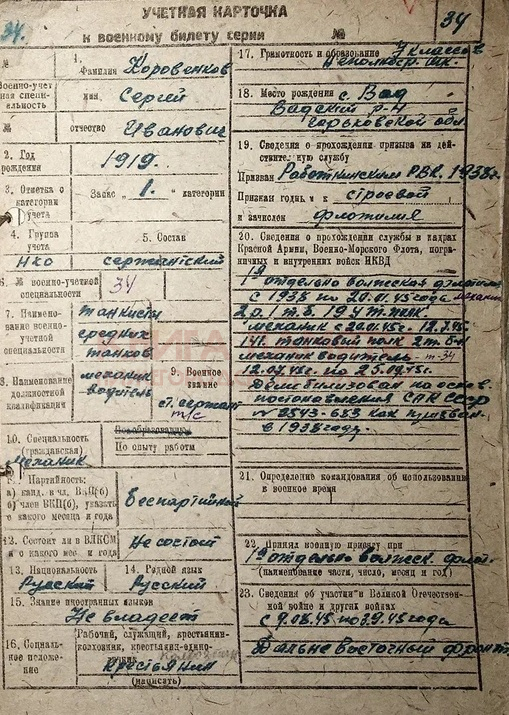 УЧЕТНАЯ КАРТОЧКА
к военному билету серии №
34
34.
№
Военно-учет
ная специ-
альность
№
1.
Фамилия Коровенков
имя Сергей
отчество Иванович
2. Год
рождения
1919.
3. Отметка о
категории
учета
Запас „ 1. “ категории
4. Группа
учета
НКО
5. Состав
сержантский
6. № военно-учетной
специальности
34
7. Наимено-
вание военно-
учетной
специальности
танкисты
средних
танков
8. Наименование
должностной
квалификации
механик
водитель
9. Военное
звание
ст. сержант
т/с
10. Специальность
(гражданская)
механик
По образованию
По опыту работы
Партийность:
а) канд. в чл. ВКП(б)
б) член ВКП(б), указать
с какого месяца и года
беспартийный
12. Состоит ли в ВЛКСМ
и с какого мес. и года
Не состоит
13. Национальность
Русский
14. Родной язык
Русский
15. Знание иностранных языков
Не владеет
16. Социаль-
ное поло-
жение
Рабочий, служащий, крестьянин-
колхозник, крестьянин-едино-
крестьянин
(написать)
17. Грамотность и образование 7 классов
18. Место рождения с. Вад
Вадский р-н
Горьковской обл.
19. Сведения о прохождении призыва на дей-
ствительную службу
Призван Работкинским РВК. 1938г.
Признан годным к строевой
и зачислен флотилия
20. Сведения о прохождении службы в кадрах
Красной Армии, Военно-Морского Флота, погра-
ничных и внутренних войск НКВД
с 1938 по 20.01.45 года механик
механик с 20.01.45г. 12.7.45
141. танковый полк 2 т. б-н
механик водитель т-34
12.07.45г. по 25.09.45г.
Демобилизован на основ.
постановления СНК СССР
№ 2543-683 как призван.
в 1938 году.
21. Определение командования об использовании
в военное время
22. Принял военную присягу при
(наименование части, число, месяц и год)
23. Сведения об участии в Великой Отечествен-
ной войне и других войнах
с 9.08.45 по 3.9.45 года
Дальне восточный фронт